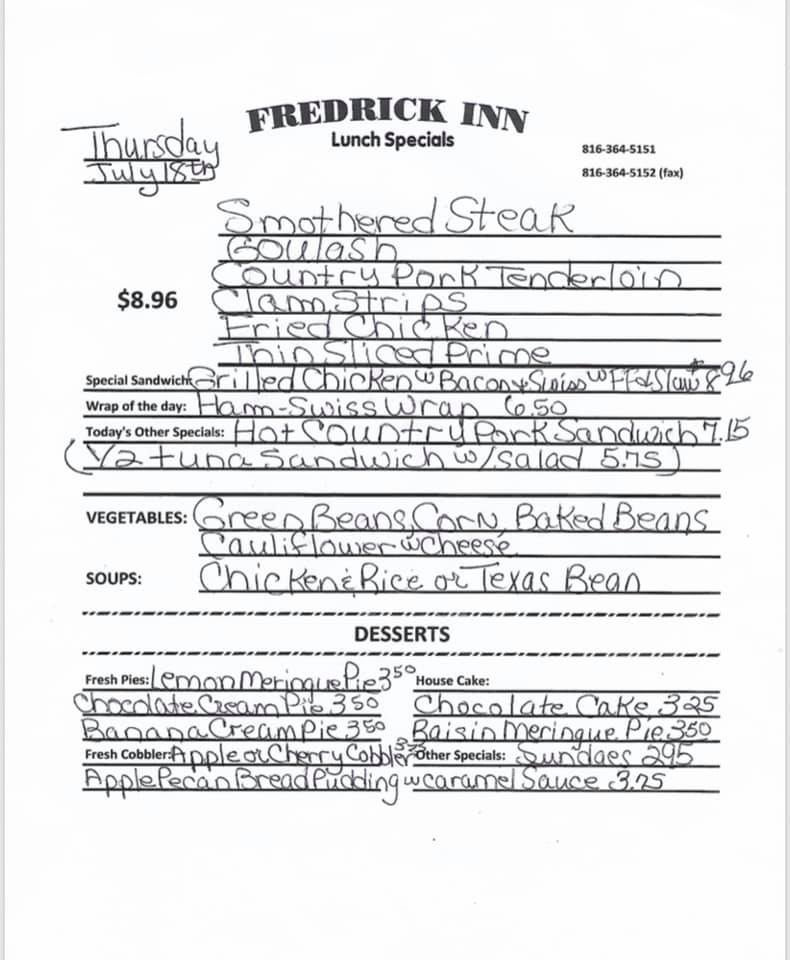 FREDRICK INN
Lunch Specials
Thursday
July 18th
816-364-5151
816-364-5152 (fax)
Smothered Steak
Goulash
Country Pork Tenderloin
$8.96
Clam Strips
Fried Chicken
Thin Sliced Prime
Special Sandwich: Grilled Chicken w Bacon & Swiss w FF & Slaw $8.96
Wrap of the day: Ham-Swiss Wrap 6.50
Today's Other Specials: Hot Country Pork Sandwich 7.15
(1/2 tuna Sandwich w/salad 5.75)
VEGETABLES: Green Beans, Corn, Baked Beans
Cauliflower w Cheese
SOUPS: Chicken & Rice or Texas Bean
DESSERTS
Fresh Pies: Lemon Meringue Pie 350
House Cake:
Chocolate Cream Pie 350
Chocolate Cake 325
Banana Cream Pie 350
Raisin Meringue Pie 350
Fresh Cobbler: Apple or Cherry Cobbler
Other Specials: Sundaes 295
Apple Pecan Bread Pudding w caramel Sauce 3.25